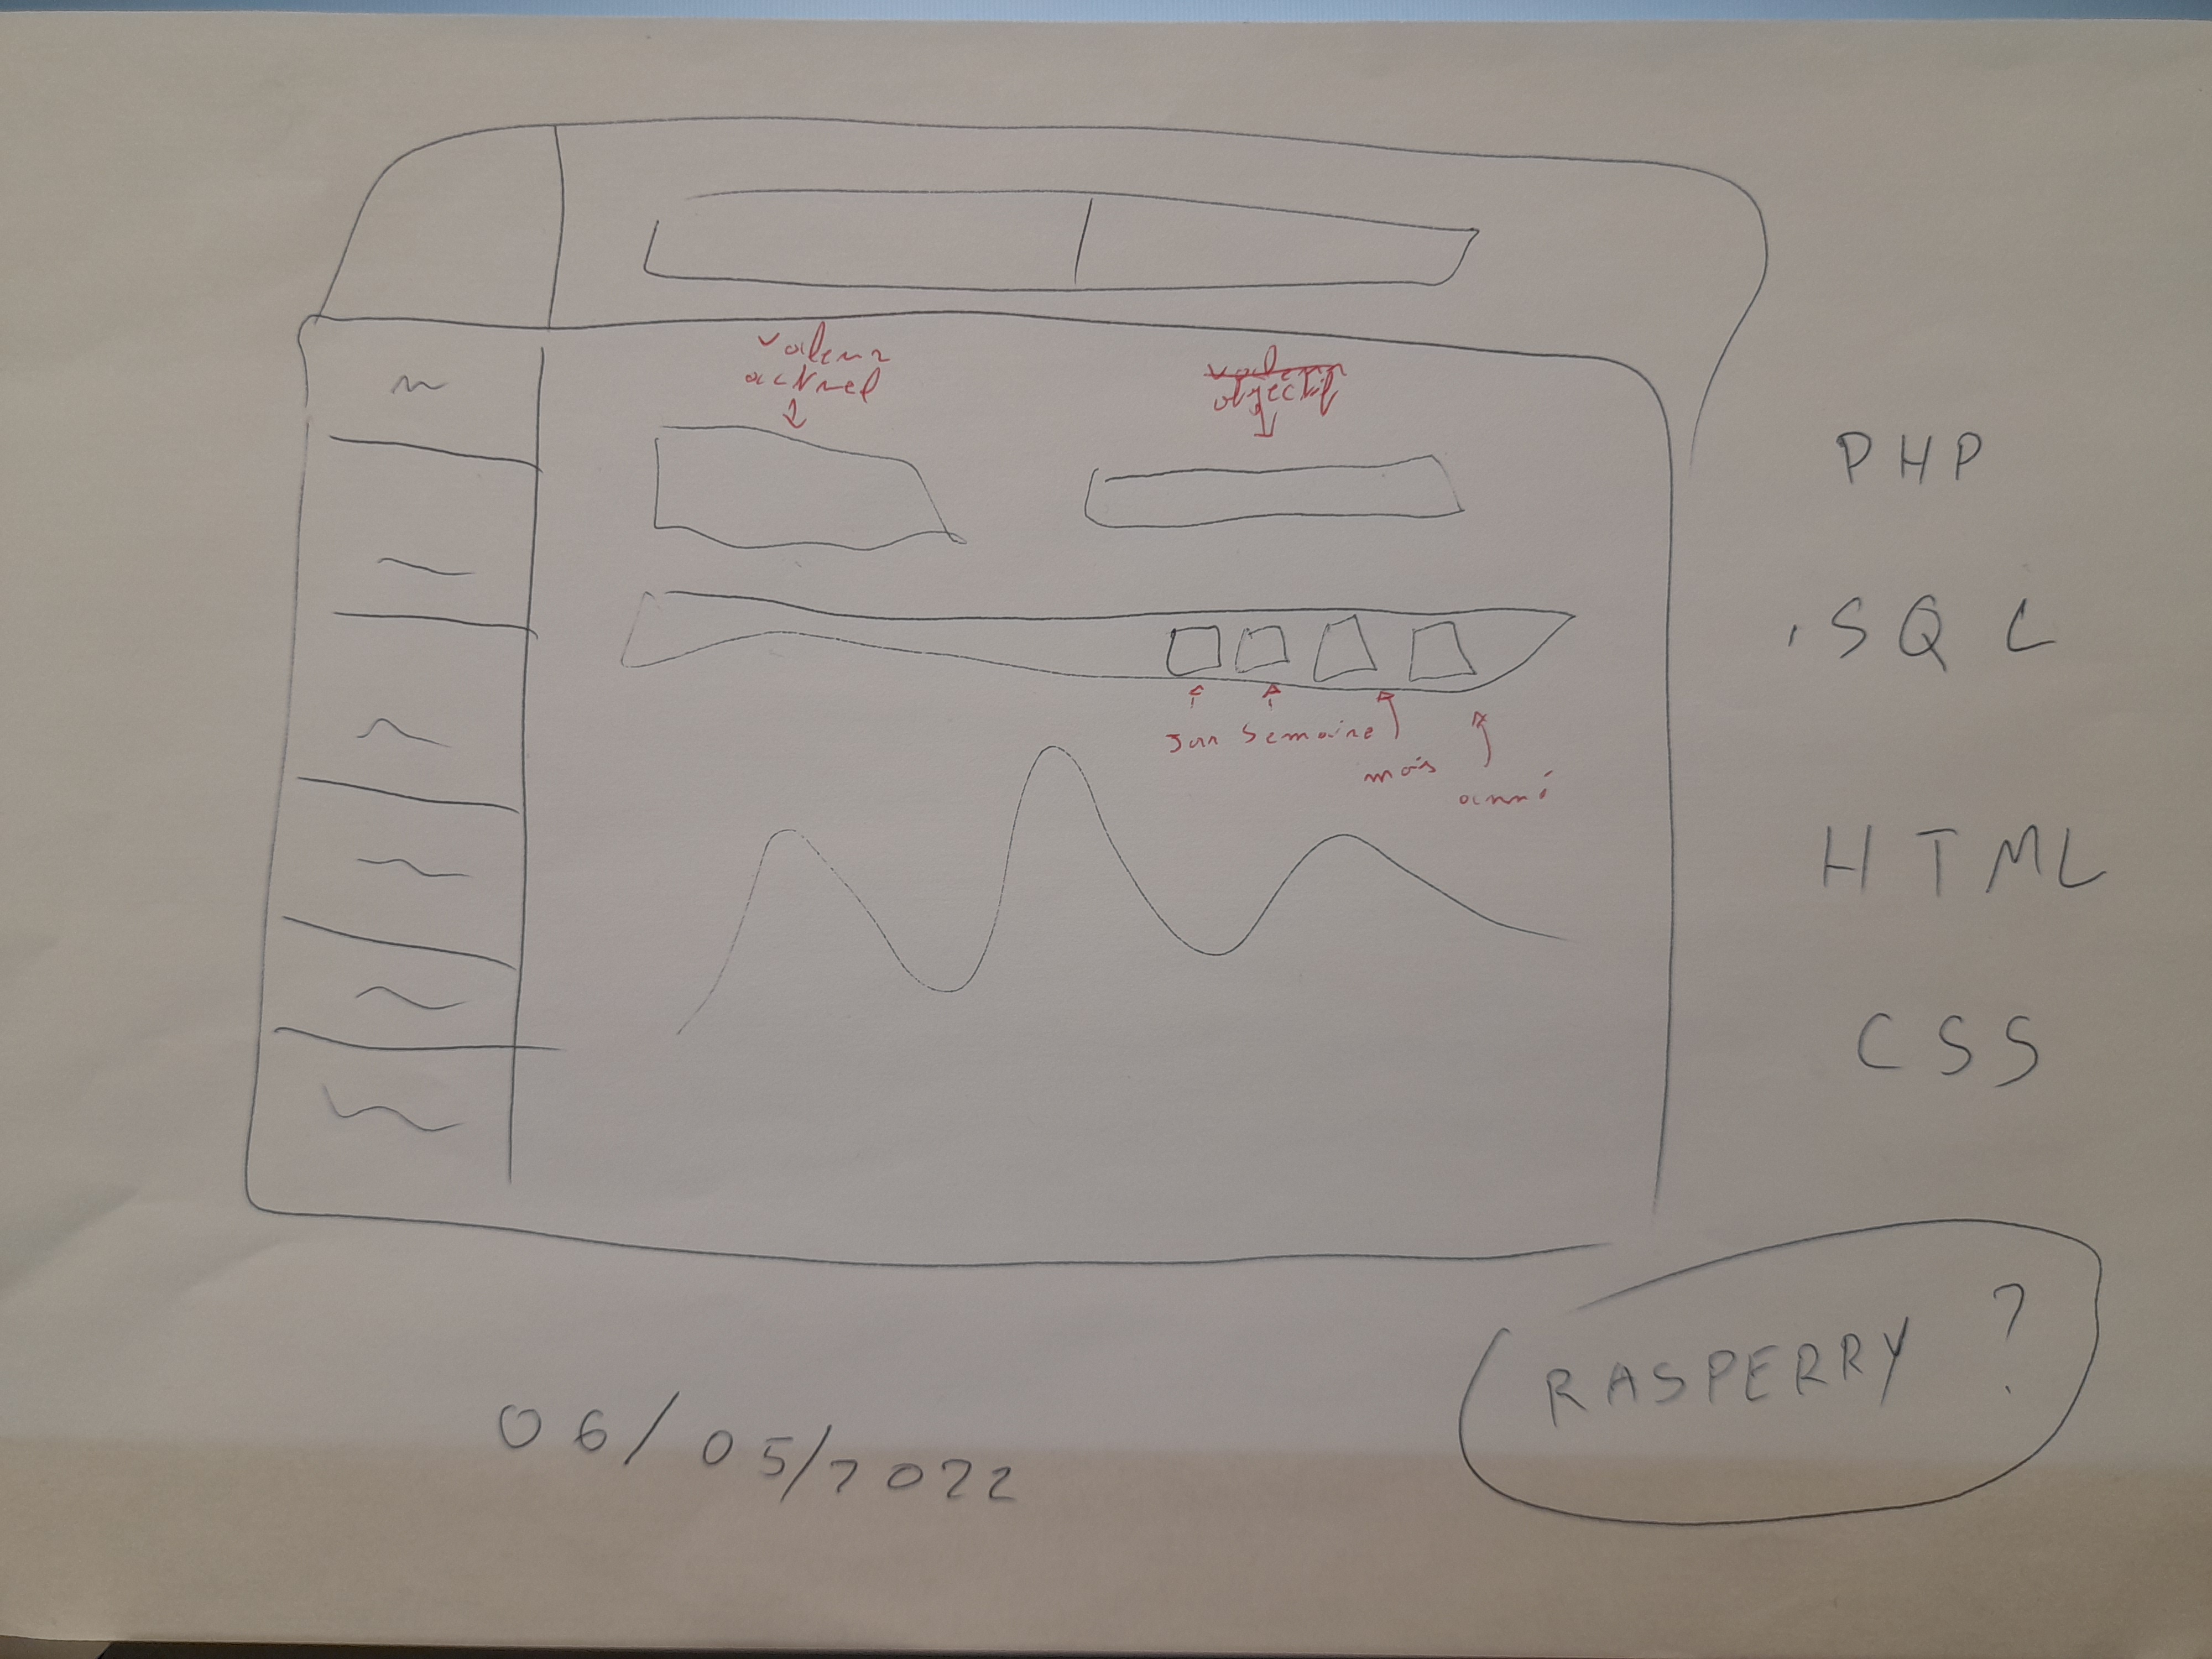 valeur
actuel
valeur
objectif
Jour semaine
mois
anné
PHP
SQL
HTML
CSS
RASPERRY ?
06/05/2022